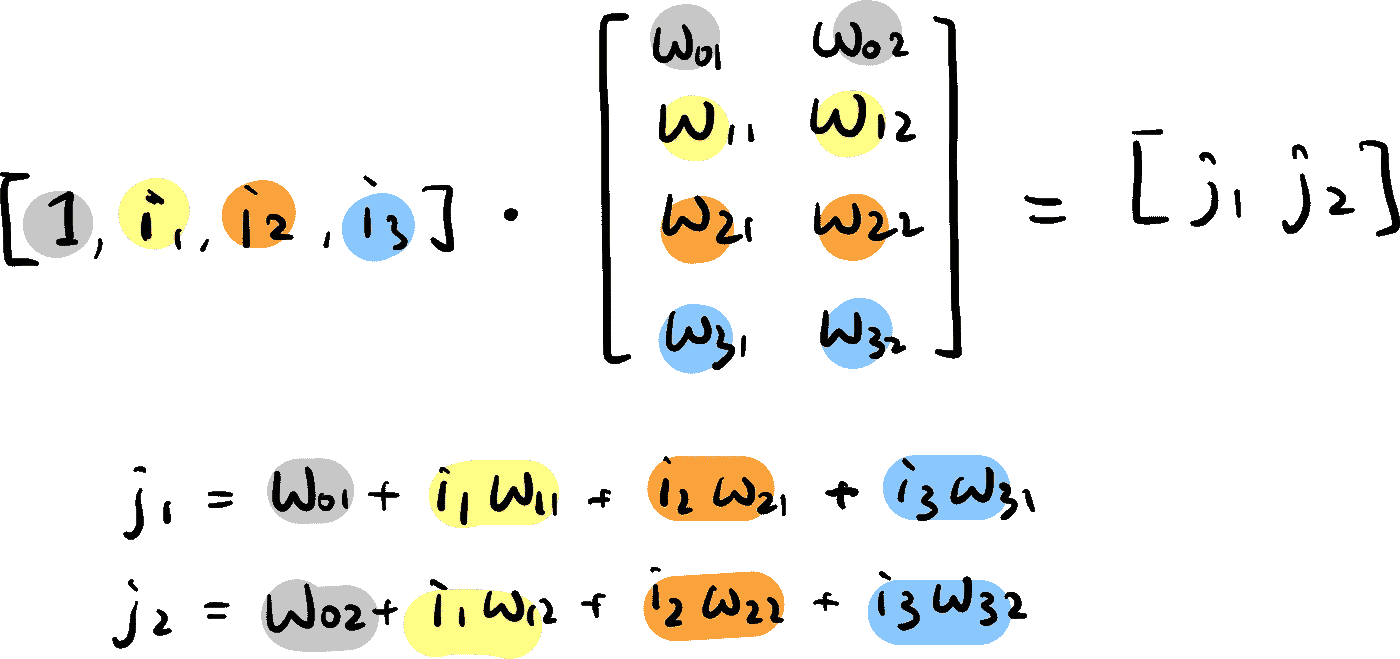 [1, i1, i2, i3] · [w01 w02
w11 w12
w21 w22
w31 w32] = [j1 j2]
j1 = w01 + i1 w11 + i2 w21 + i3 w31
j2 = w02 + i1 w12 + i2 w22 + i3 w32